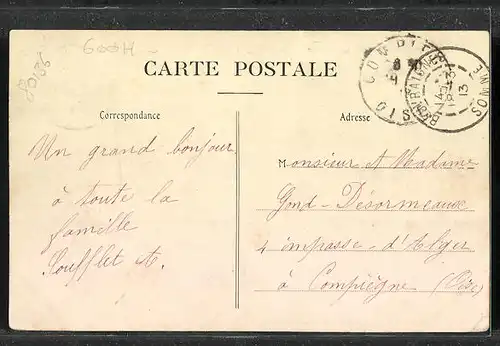 600H
CARTE POSTALE
Correspondance
Adresse
Un grand bonjour
à toute la
famille
Soufflet A.
Monsieur et Madame
Gond-Désormeaux
4 impasse-d'Alger
à Compiègne (Oise)
COMPIEGNE
OISE
SOMME
13